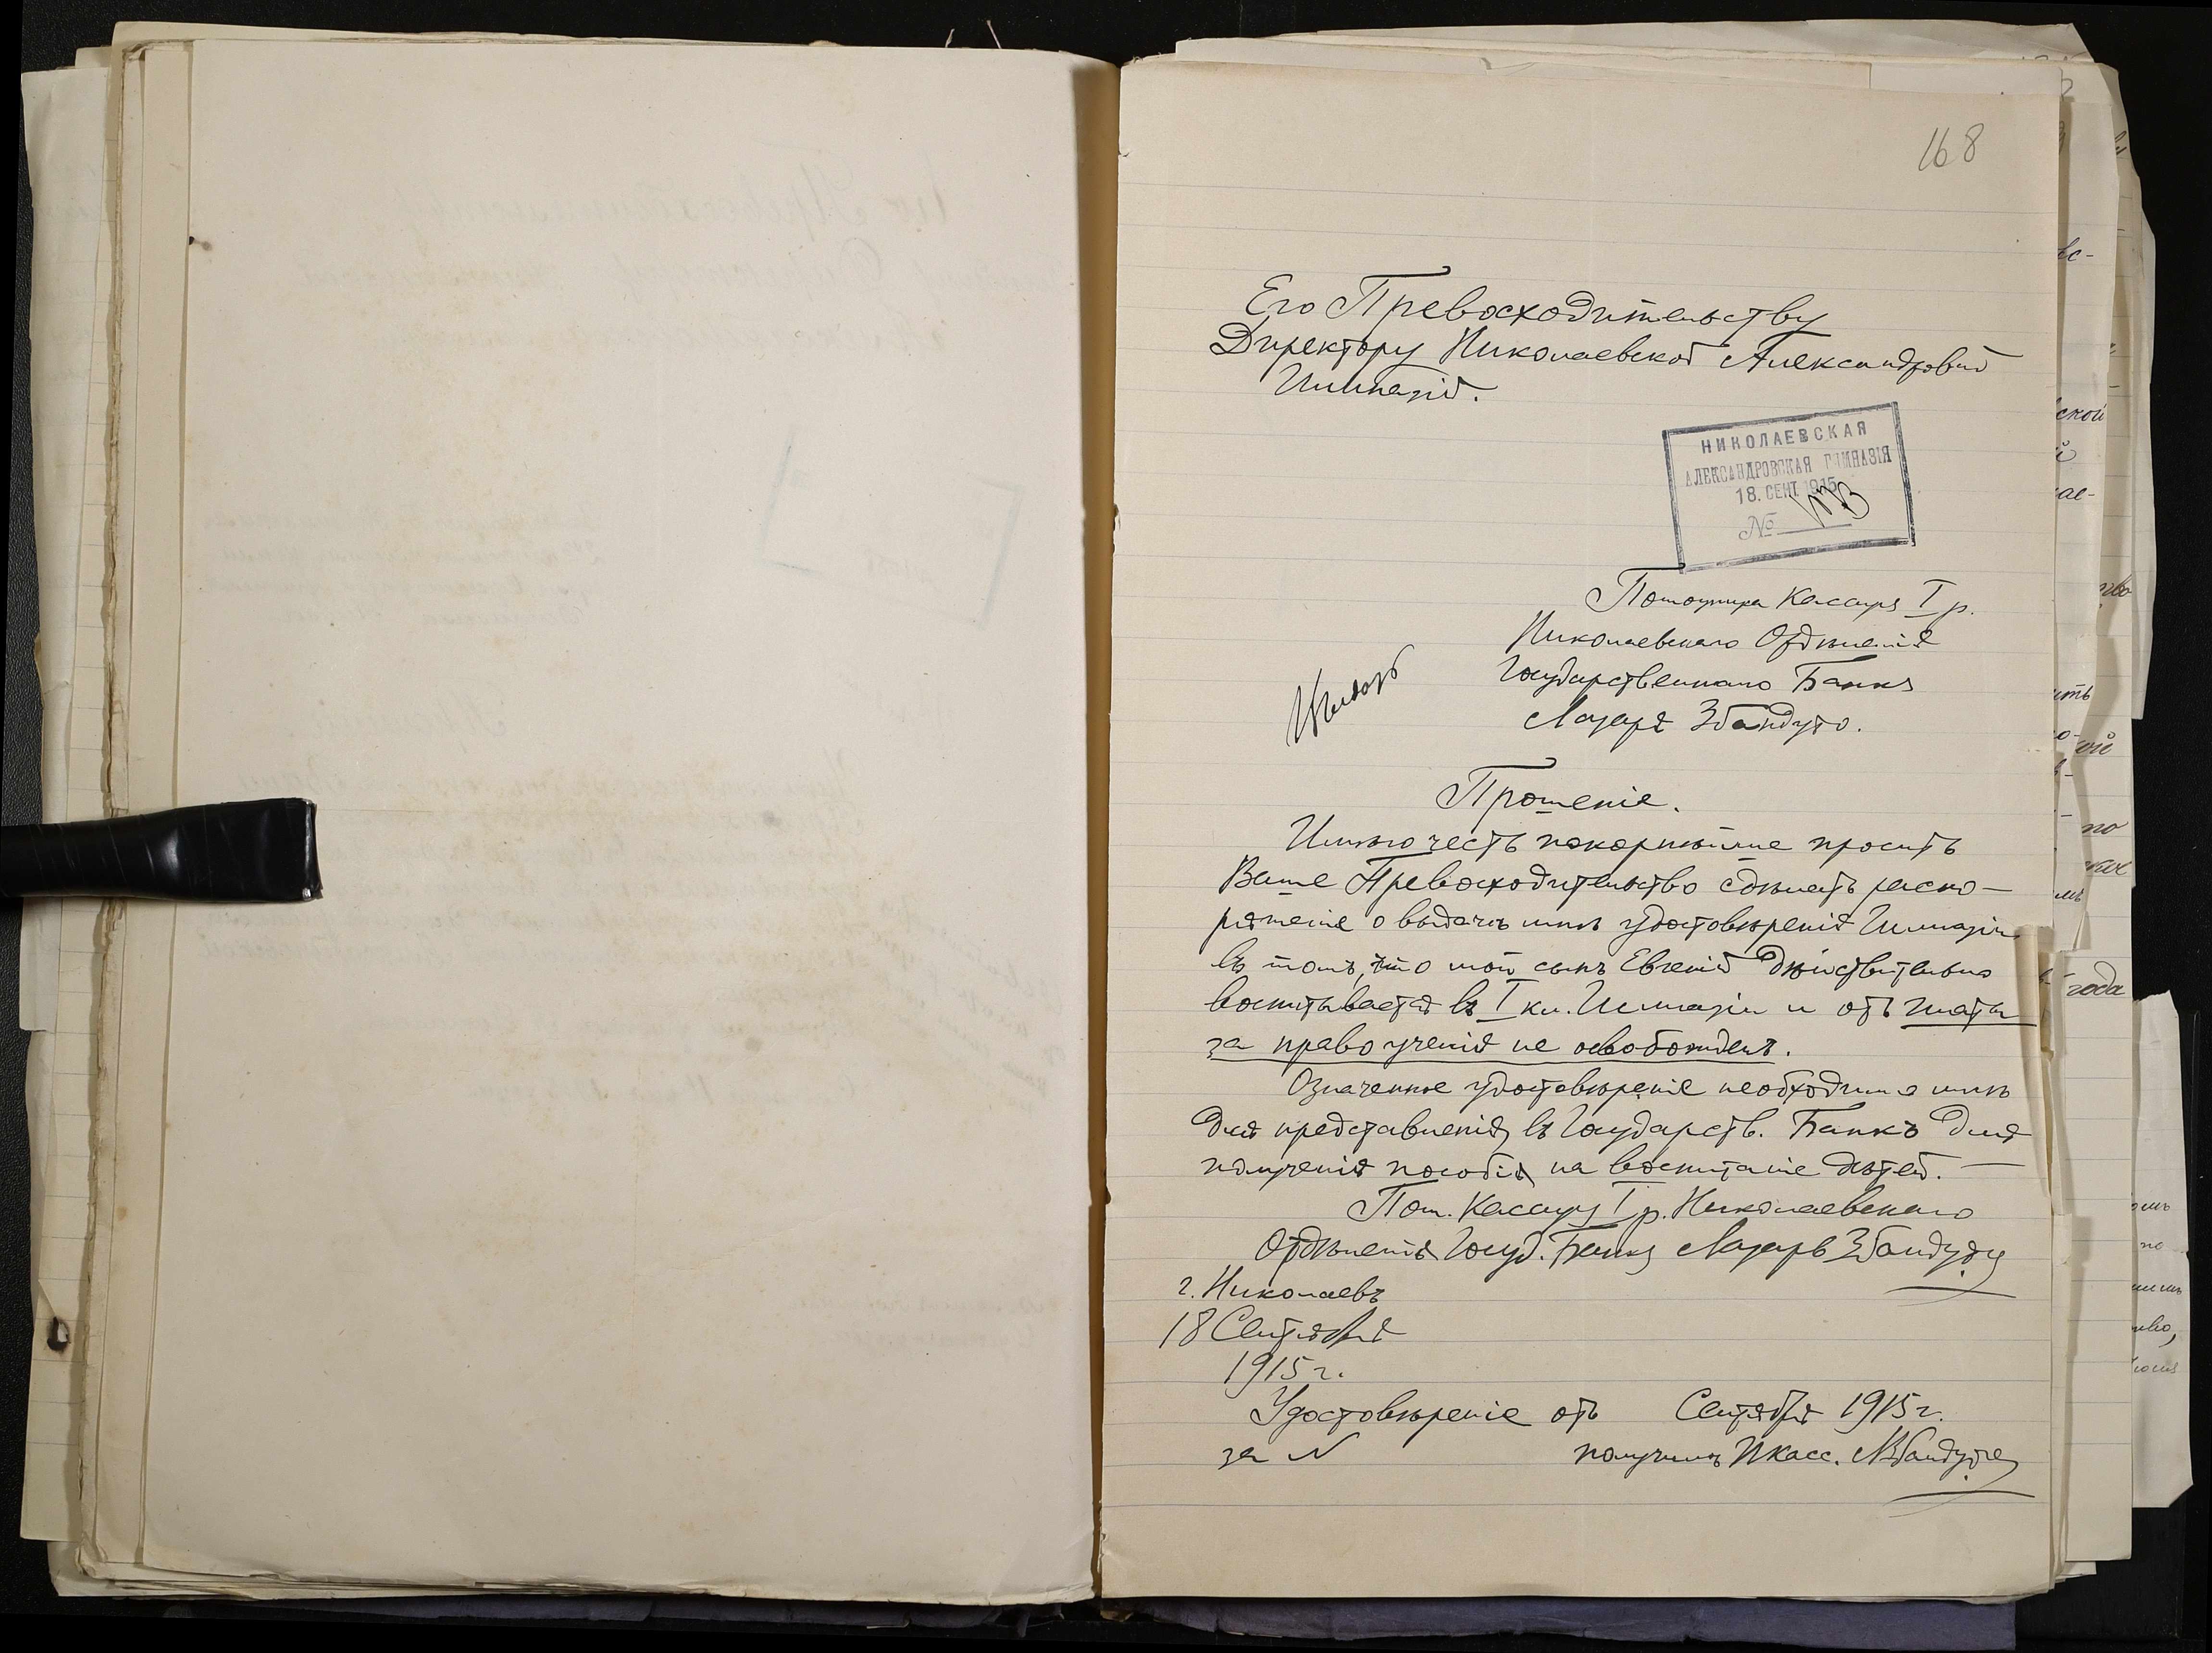 168
Его Превосходительству
Директору Николаевской Александровской
Гимназіи.
НИКОЛАЕВСКАЯ
АЛЕКСАНДРОВСКАЯ ГИМНАЗІЯ
18. СЕНТ. 1915
№
Помощника Кассира I р.
Николаевскаго Отдѣленія
Государственнаго Банка
Лазаря Збандуто.
Прошеніе.
Имѣю честь покорнѣйше просить
Ваше Превосходительство сдѣлать распо-
ряженіе о выдачѣ мнѣ удостовѣренія Гимназіи
въ томъ, что мой сынъ Евгеній дѣйствительно
воспитывается въ I кл. Гимназіи и отъ платы
за право ученія не освобожденъ.
Означенное удостовѣреніе необходимо мнѣ
для представленія въ Государств. Банкъ для
полученія пособія на воспитаніе дѣтей. —
Пом. Кассира I р. Николаевскаго
Отдѣленія Госуд. Банка Лазарь Збандуто
г. Николаевъ
18 Сентября
1915 г.
Удостовѣреніе отъ Сентября 1915 г.
за N получилъ П касс. ЛЗбандуто